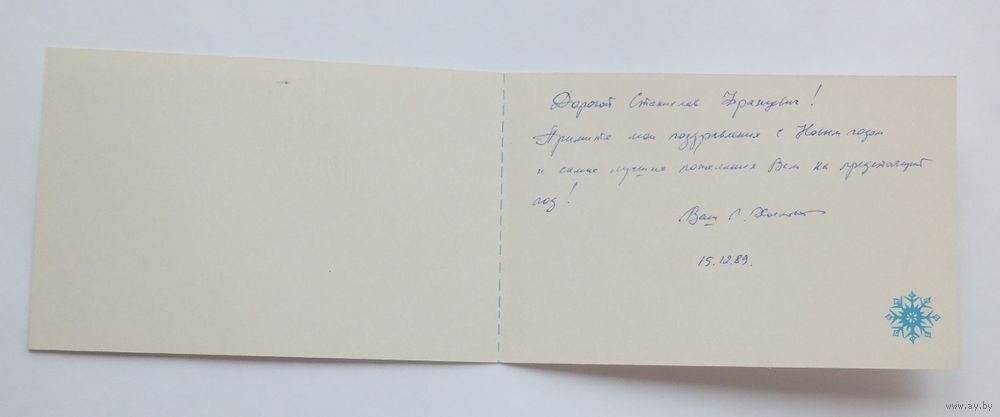 Дорогой Станислав Францевич!
Примите мои поздравления с Новым годом
и самые лучшие пожелания Вам на предстоящий
год!
Ваш Г.
15.12.89.
www.ay.by